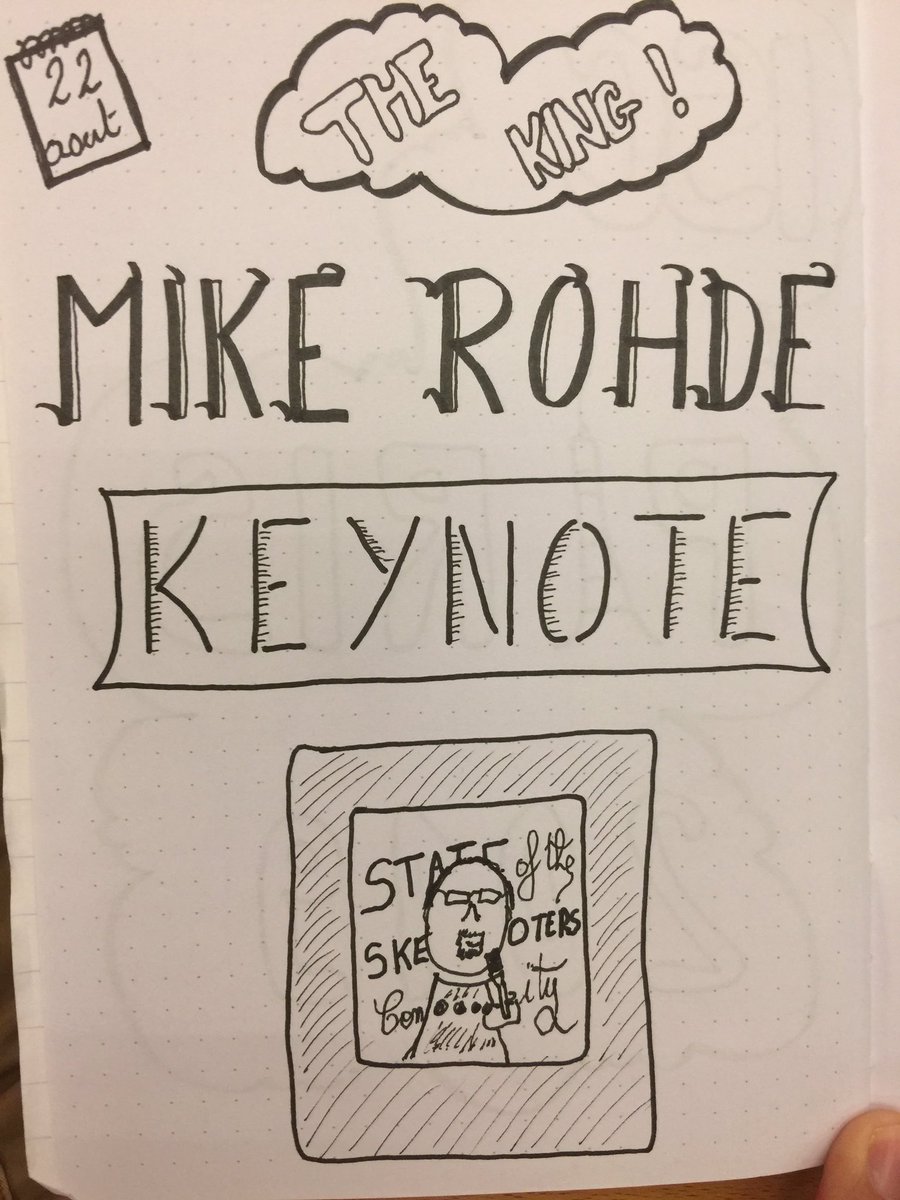 22
aout
THE
KING!
MIKE ROHDE
KEYNOTE
STATE of the
SKE OTERS
Com ity